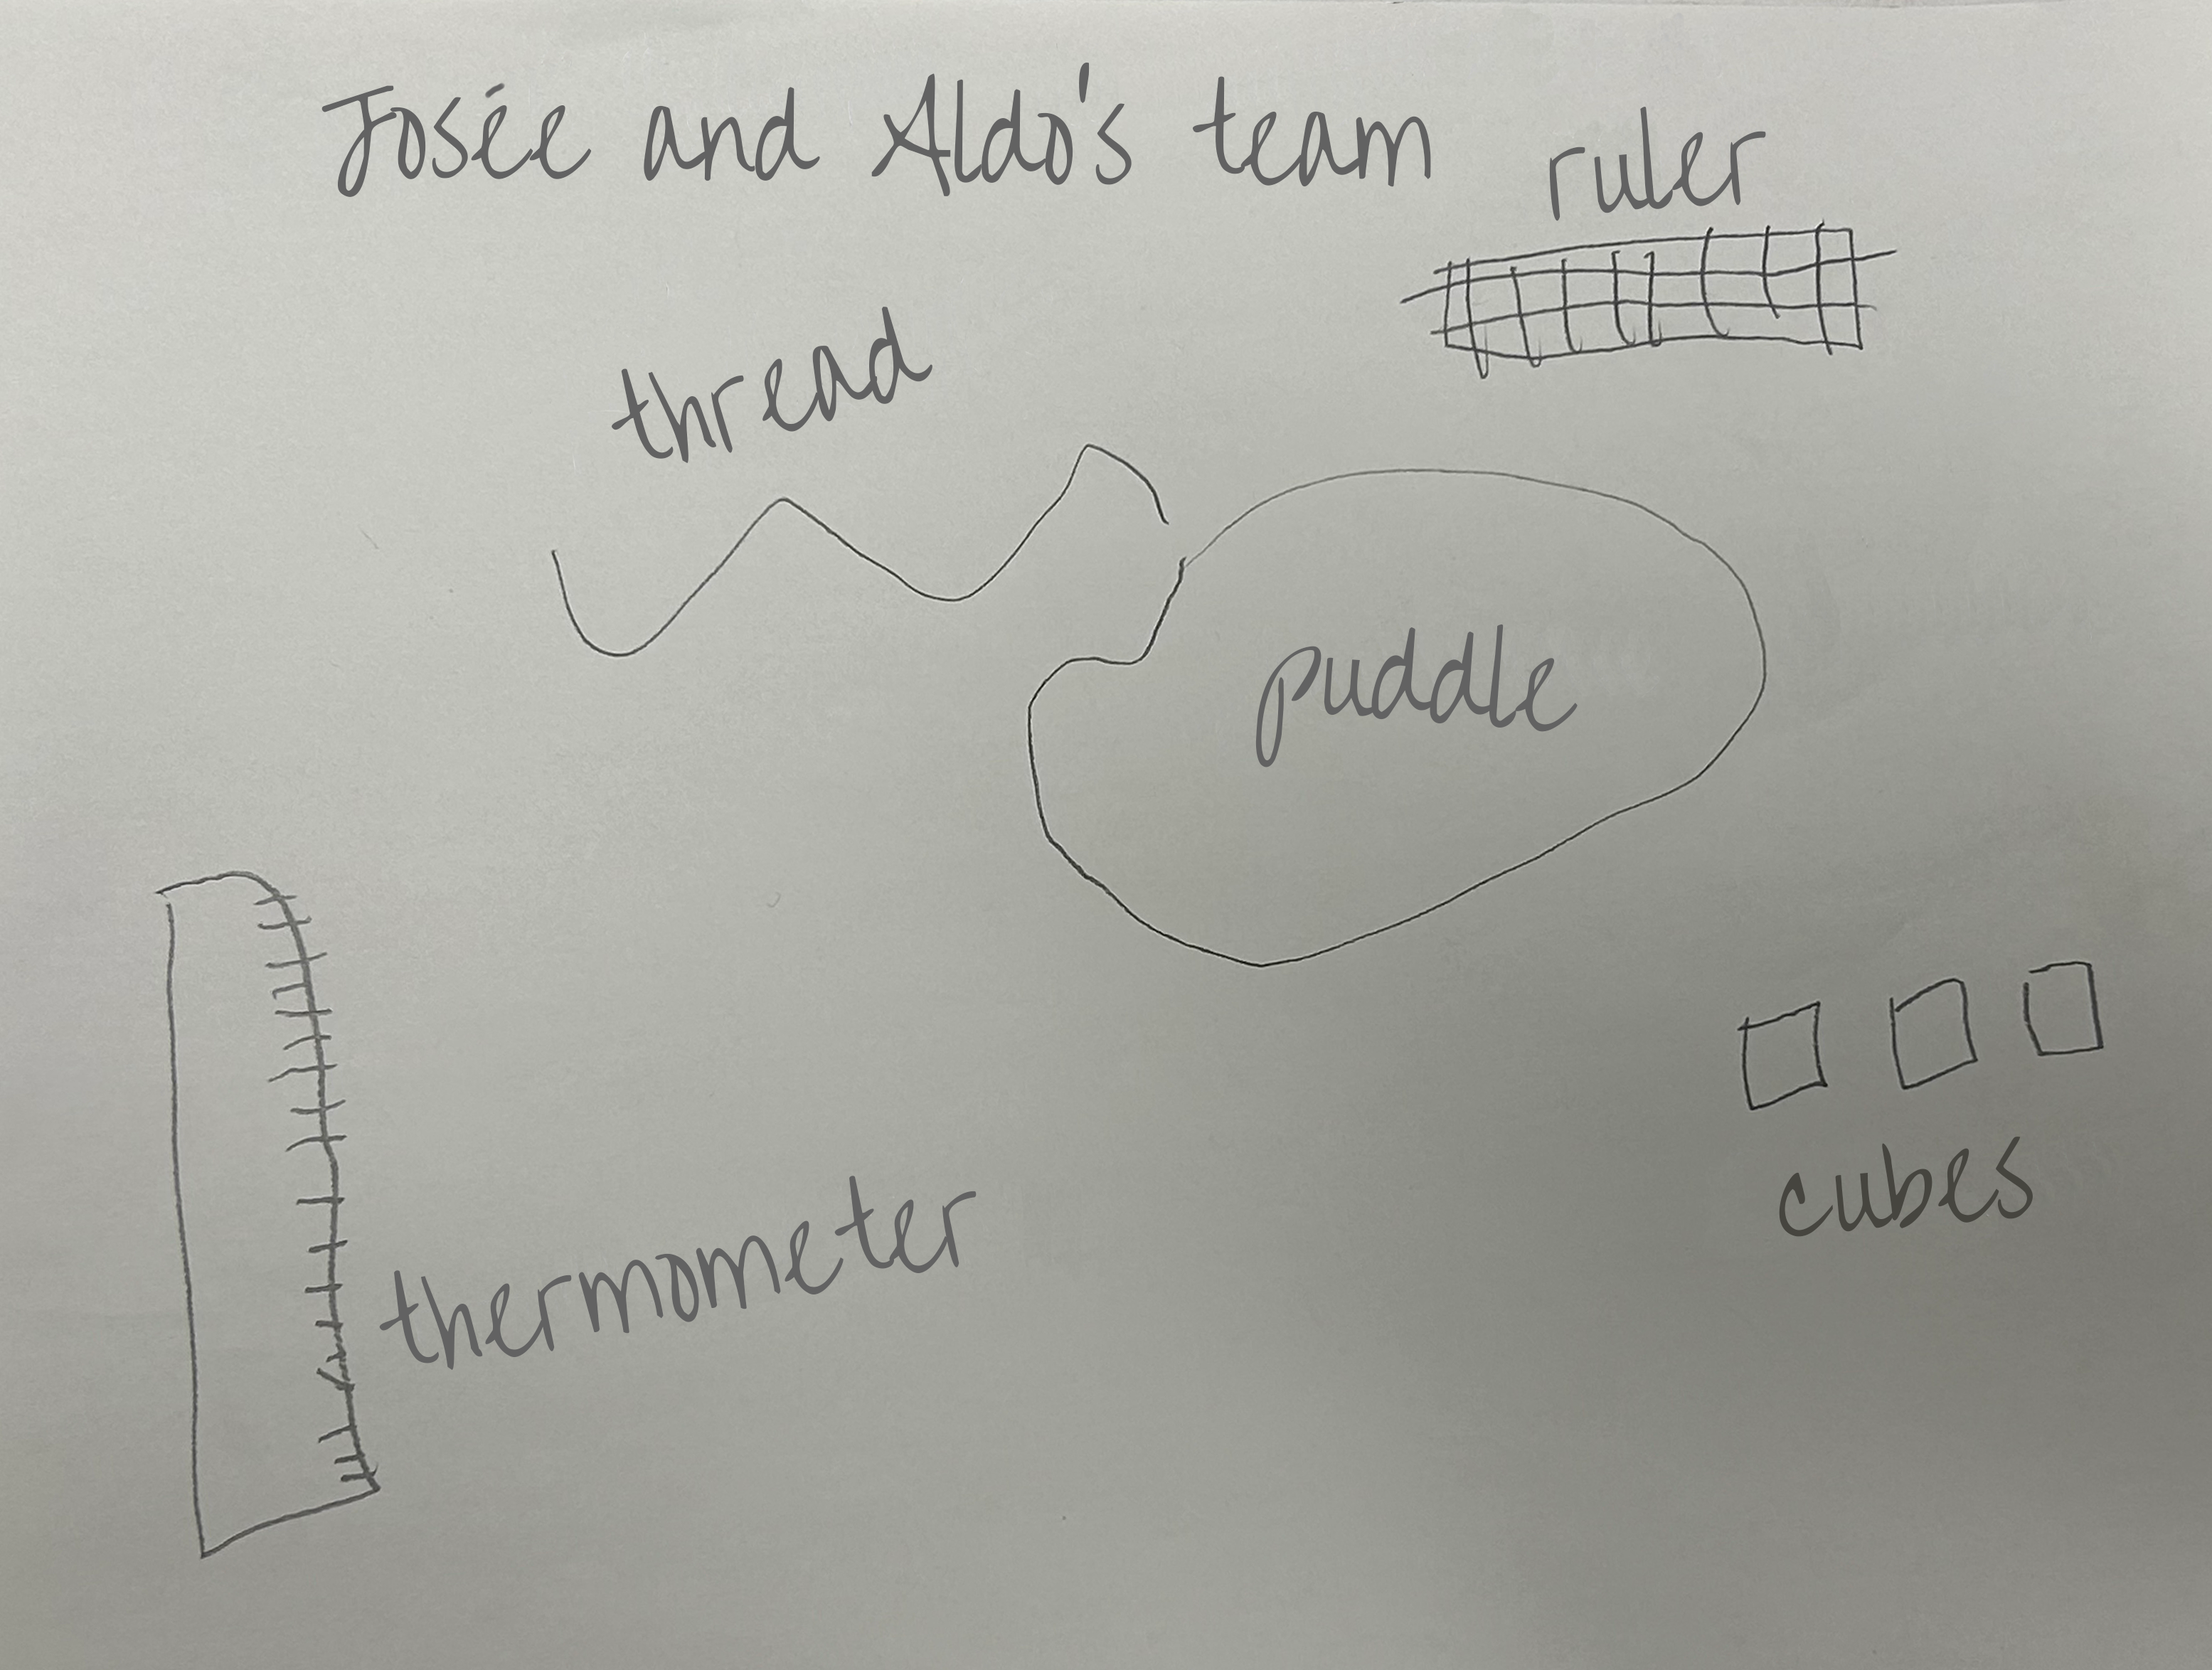 Josée and Aldo's team
ruler
thread
puddle
cubes
thermometer